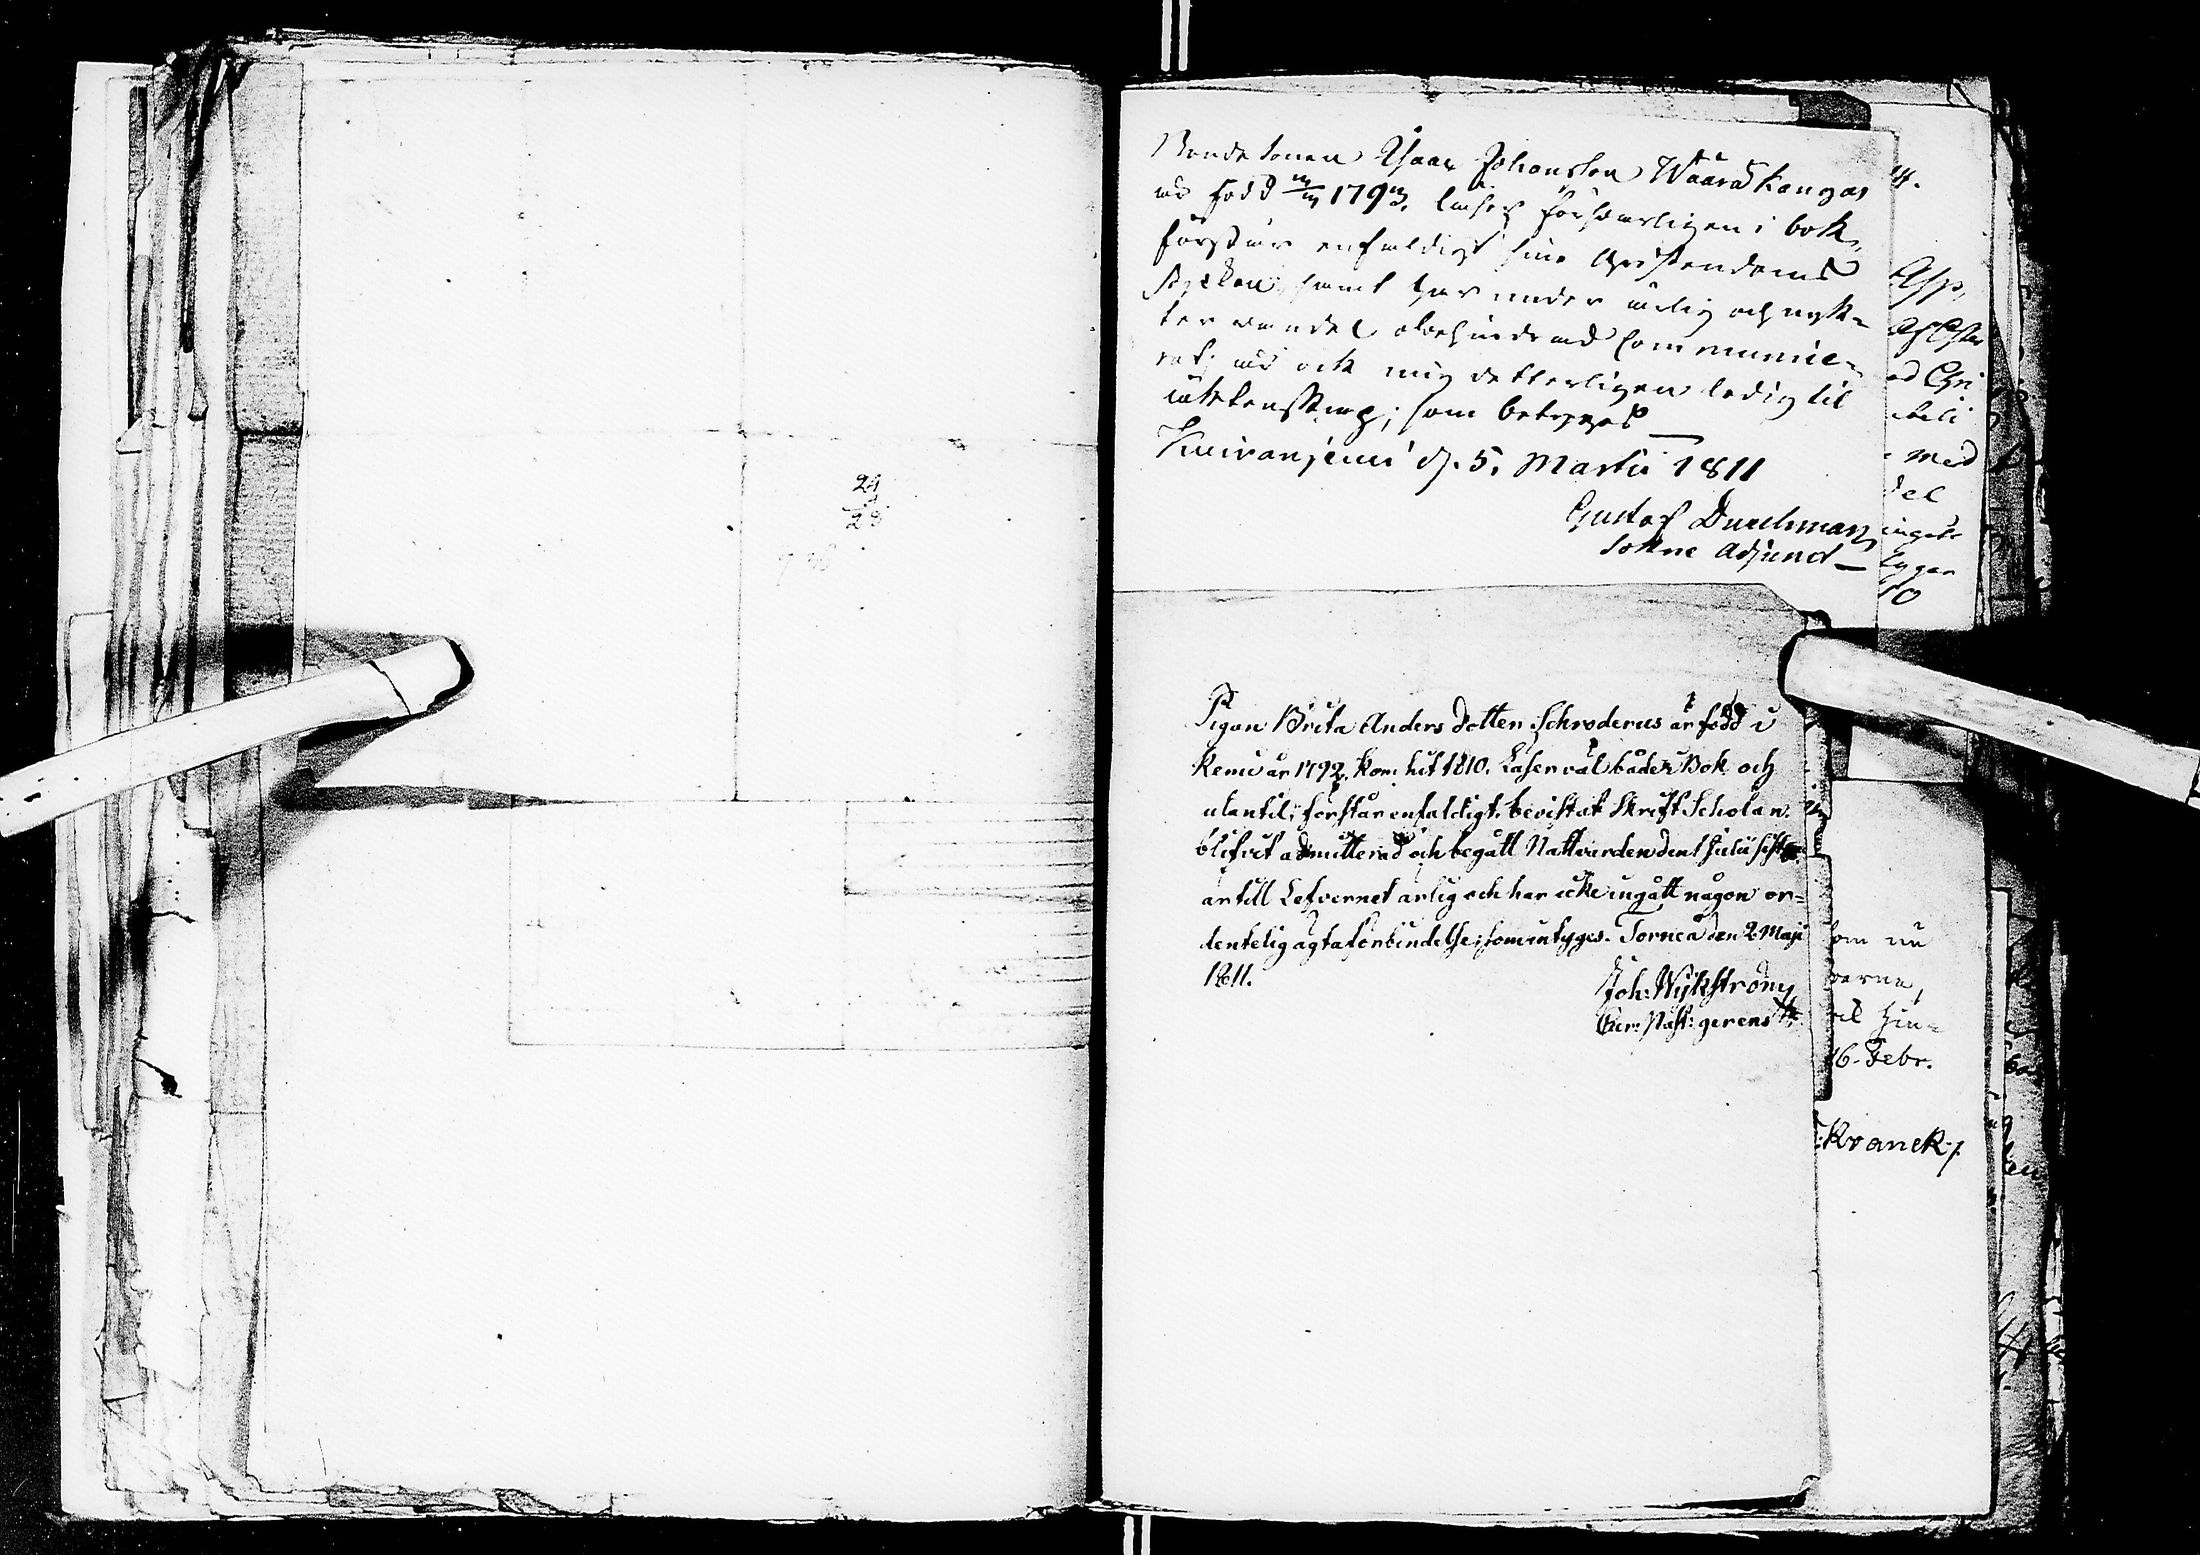 29
28
Bonde Sonen Isaac Johansson Waarakangas
är född 1793. läser försvarligen i bok,
förstår enfaldigt sine Christendoms
stycken, samt har under ärlig och nyk-
ter vandel obehindrad communice-
rat; är ock mig vetterligen ledig til
äktenskap; som betygas
Kuivaniemi d. 5. Martii 1811
Gustaf Durchman
Sokne Adjunct
Pigan Brita Anders dotter Schroderus är född i
Kemi år 1792, kom hit 1810. Läser väl både i Bok och
utantil; förstår enfaldigt, bevistat Skrift Scholan,
blifvit admitterad och begått Nattvarden den 1 Julii sistl.
är till Lefvernet ärlig och har icke ingått någon or-
dentelig ägtaförbindelse; som intyges. Torneå den 2 Maji
1811.
Joh: Wijkström
Cur: Past: gerens
med
del
lyger
10
som nu
16. Febr.